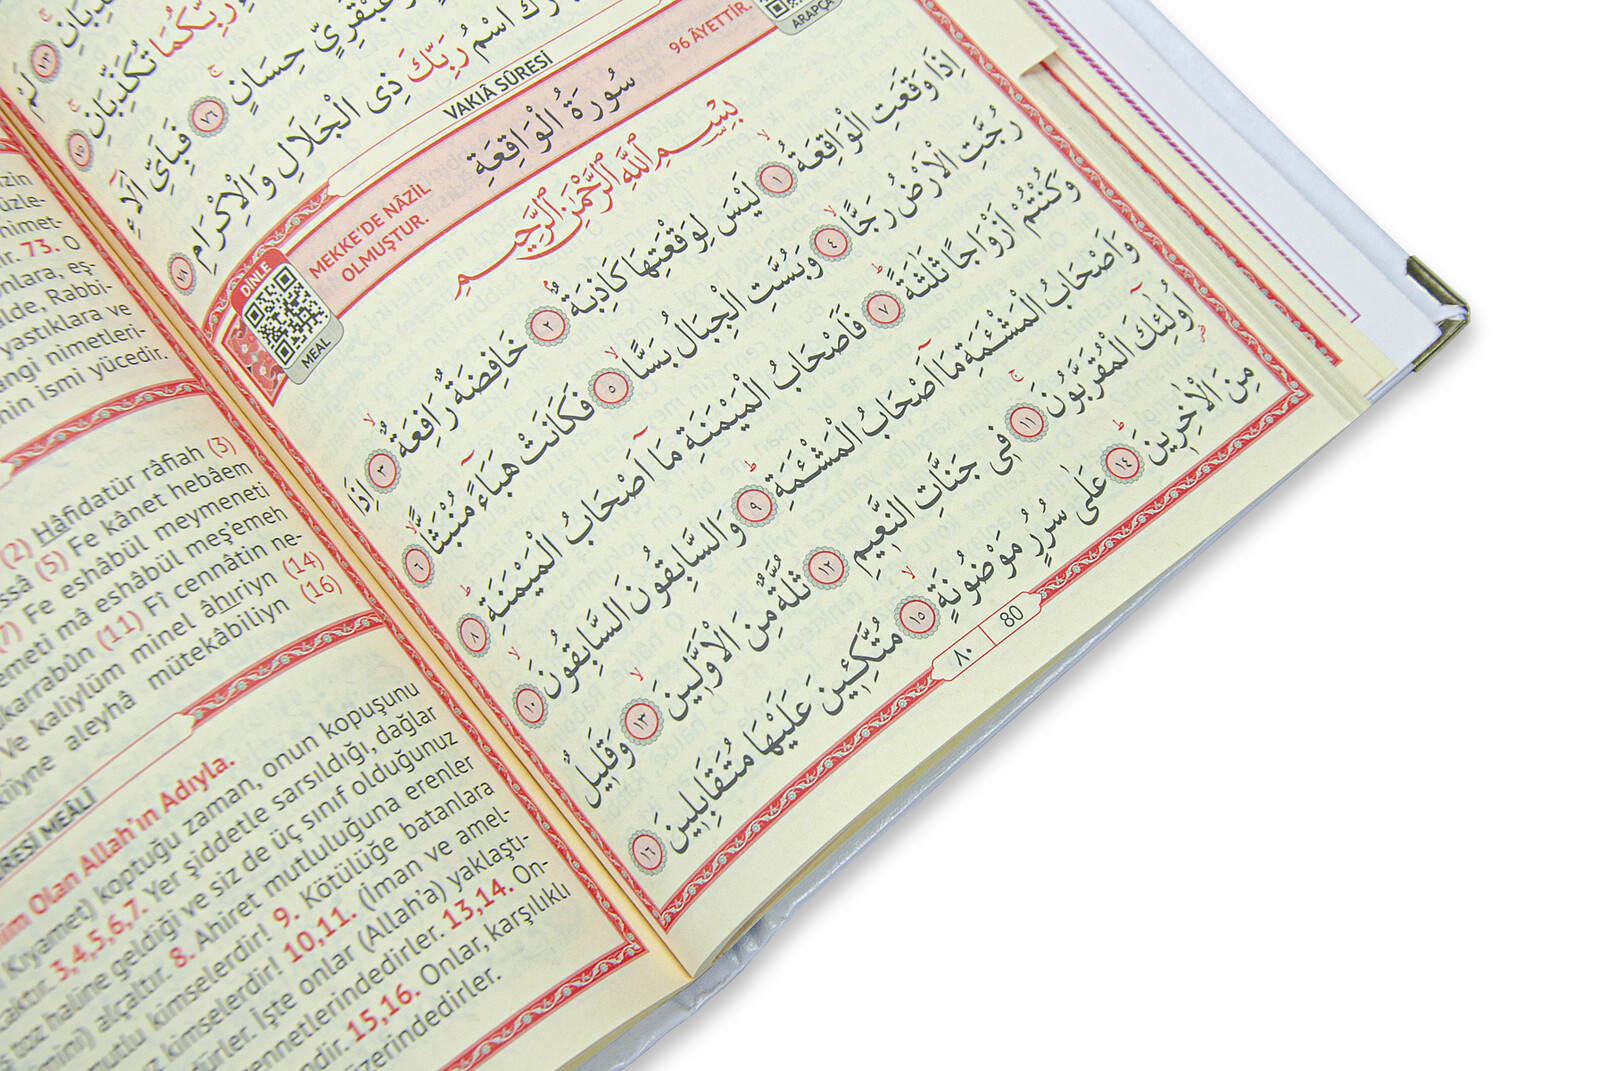 رَبِّكُمَا تُكَذِّبَانِ ﴿٧٥﴾
عَبْقَرِيٍّ حِسَانٍ ﴿٧٦﴾ فَبِاَيِّ اٰلَٓاءِ
اسْمُ رَبِّكَ ذِى الْجَلَالِ وَالْاِكْرَامِ ﴿٧٨﴾
VAKIÂ SÛRESİ
96 ÂYETTİR.
سُورَةُ الْوَاقِعَةِ
MEKKE'DE NÂZİL
OLMUŞTUR.
ARAPÇA
DİNLE
MEAL
بِسْمِ اللّٰهِ الرَّحْمٰنِ الرَّحِيمِ
اِذَا وَقَعَتِ الْوَاقِعَةُ ﴿١﴾ لَيْسَ لِوَقْعَتِهَا كَاذِبَةٌ ﴿٢﴾ خَافِضَةٌ رَافِعَةٌ ﴿٣﴾ اِذَا
رُجَّتِ الْاَرْضُ رَجًّا ﴿٤﴾ وَبُسَّتِ الْجِبَالُ بَسًّا ﴿٥﴾ فَكَانَتْ هَبَٓاءً مُنْبَثًّا ﴿٦﴾
وَكُنْتُمْ اَزْوَاجًا ثَلٰثَةً ﴿٧﴾ فَاَصْحَابُ الْمَيْمَنَةِ مَٓا اَصْحَابُ الْمَيْمَنَةِ ﴿٨﴾
وَاَصْحَابُ الْمَشْـَٔمَةِ مَٓا اَصْحَابُ الْمَشْـَٔمَةِ ﴿٩﴾ وَالسَّابِقُونَ السَّابِقُونَ ﴿١٠﴾
اُو۬لٰٓئِكَ الْمُقَرَّبُونَ ﴿١١﴾ فِى جَنَّاتِ النَّعِيمِ ﴿١٢﴾ ثُلَّةٌ مِنَ الْاَوَّلِينَ ﴿١٣﴾ وَقَلِيلٌ
مِنَ الْاٰخِرِينَ ﴿١٤﴾ عَلٰى سُرُرٍ مَوْضُونَةٍ ﴿١٥﴾ مُتَّكِـِٔينَ عَلَيْهَا مُتَقَابِلِينَ ﴿١٦﴾
٨٠ 80
nimet-
73. O
onlara, eş-
Rabbi-
yastıklara ve
nimetleri-
ismi yücedir.
(2) Hâfidatür râfiah (3)
(5) Fe kânet hebâem
(7) Fe eshâbül meymeneti
mâ eshâbül meş'emeh
(11) Fî cennâtin ne-
Ve kaliylüm minel âhıriyn (14)
aleyhâ mütekâbiliyn (16)
MEÂLİ
Olan Allah'ın Adıyla.
Kıyamet) koptuğu zaman, onun kopuşunu
3,4,5,6,7. Yer şiddetle sarsıldığı, dağlar
toz haline geldiği ve siz de üç sınıf olduğunuz
alçaltır. 8. Ahiret mutluluğuna erenler
mutlu kimselerdir! 9. Kötülüğe batanlara
kimselerdir! 10,11. (İman ve amel-
İşte onlar (Allah'a) yaklaştı-
cennetlerindedirler. 13,14. On-
15,16. Onlar, karşılıklı
üzerindedirler.